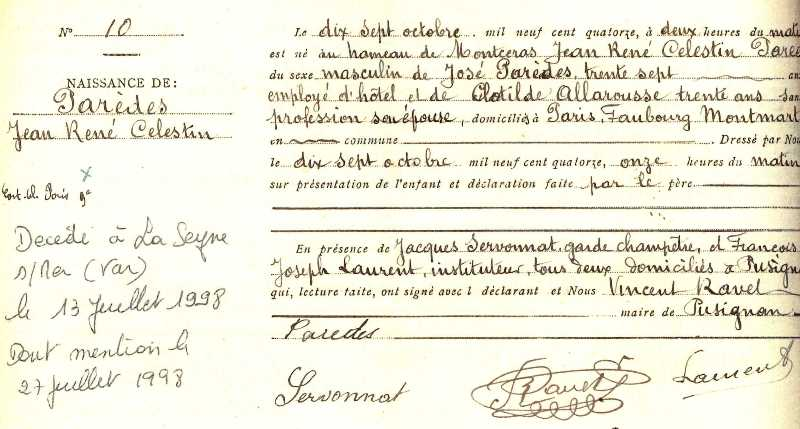 N° 10
NAISSANCE DE:
Parèdes
Jean René Celestin
x
Cert. bl. Paris 9e
Decédé à La Seyne
s/Mer (Var)
le 13 Juillet 1998
Dont mention le
27 Juillet 1998
Le dix sept octobre. mil neuf cent quatorze, à deux heures du mati
est né au hameau de Montceras Jean René Celestin Parè
du sexe masculin de José Parèdes, trente sept an
employé d'hôtel et de Clotilde Allarousse trente ans san
profession son épouse, domiciliés à Paris, Faubourg Montmart
en commune. Dressé par Nou
le dix sept octobre mil neuf cent quatorze, onze heures du matin
sur présentation de l'enfant et déclaration faite par le père
En présence de Jacques Servonnat, garde champêtre, et François
Joseph Laurent, instituteur, tous deux domiciliés à Pusign
qui, lecture faite, ont signé avec l déclarant et Nous Vincent Ravel
maire de Pusignan
Paredes
Servonnat Ravel Laurent